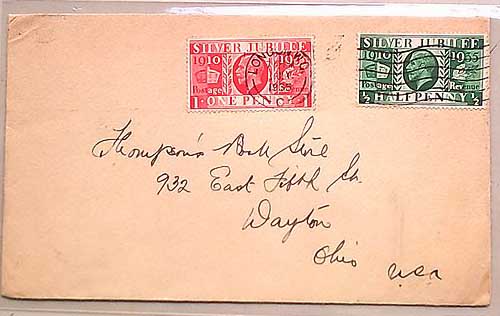 SILVER JUBILEE
1910 1935
Postage Revenue
1 ONE PENNY 1
LONDON
1935
SILVER JUBILEE
1910 1935
Postage Revenue
½ HALFPENNY ½
Thompson's Book Store
932 East Fifth St.
Dayton
Ohio USA